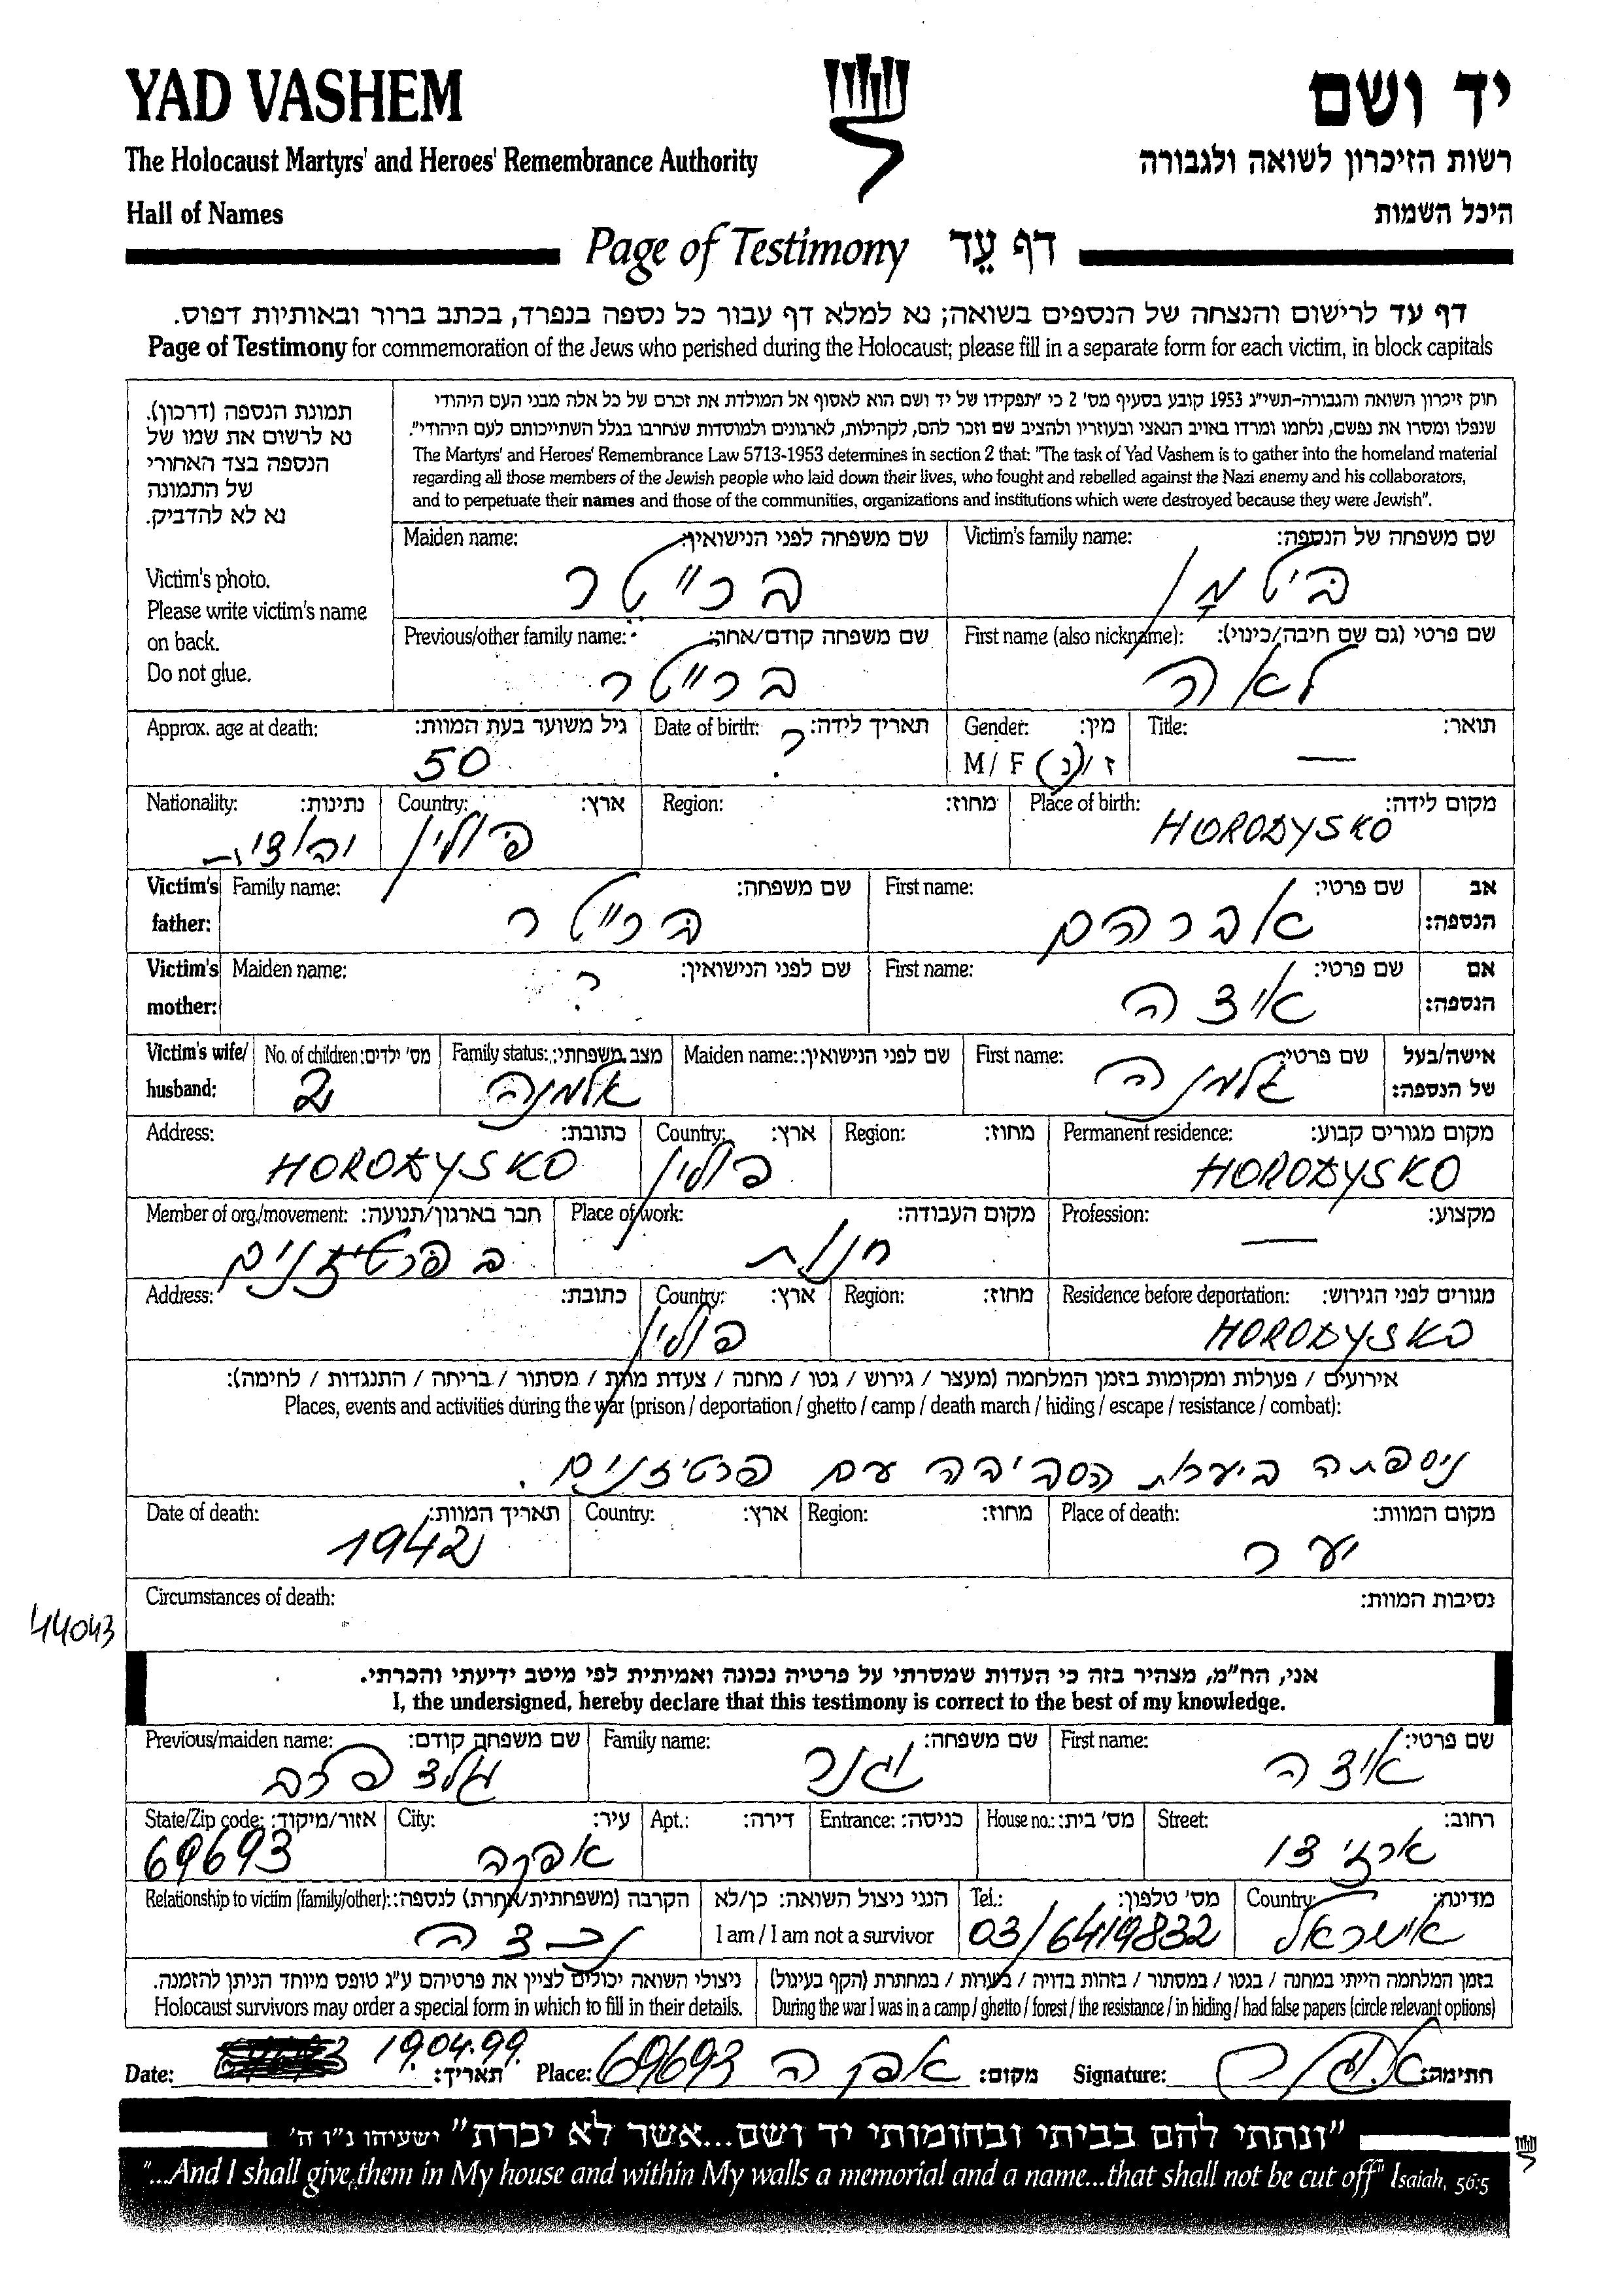 YAD VASHEM
יד ושם
The Holocaust Martyrs' and Heroes' Remembrance Authority
רשות הזיכרון לשואה ולגבורה
Hall of Names
היכל השמות
Page of Testimony דף עֵד
דף עד לרישום והנצחה של הנספים בשואה; נא למלא דף עבור כל נספה בנפרד, בכתב ברור ובאותיות דפוס.
Page of Testimony for commemoration of the Jews who perished during the Holocaust; please fill in a separate form for each victim, in block capitals
תמונת הנספה (דרכון).
נא לרשום את שמו של
הנספה בצד האחורי
של התמונה
נא לא להדביק.
Victim's photo.
Please write victim's name
on back.
Do not glue.
חוק זיכרון השואה והגבורה-תשי"ג 1953 קובע בסעיף מס' 2 כי "תפקידו של יד ושם הוא לאסוף אל המולדת את זכרם של כל אלה מבני העם היהודי
שנפלו ומסרו את נפשם, נלחמו ומרדו באויב הנאצי ובעוזריו ולהציב שם וזכר להם, לקהילות, לארגונים ולמוסדות שנחרבו בגלל השתייכותם לעם היהודי".
The Martyrs' and Heroes' Remembrance Law 5713-1953 determines in section 2 that: "The task of Yad Vashem is to gather into the homeland material
regarding all those members of the Jewish people who laid down their lives, who fought and rebelled against the Nazi enemy and his collaborators,
and to perpetuate their names and those of the communities, organizations and institutions which were destroyed because they were Jewish".
שם משפחה של הנספה: Victim's family name:
ביטמן
שם משפחה לפני הנישואין: Maiden name:
ברייטר
שם פרטי (גם שם חיבה/כינוי): First name (also nickname):
לאה
שם משפחה קודם/אחר: Previous/other family name:
ברייטר
תואר: Title:
—
מין: Gender:
ז / (נ) M / F
תאריך לידה: Date of birth:
?
גיל משוער בעת המוות: Approx. age at death:
50
מקום לידה: Place of birth:
HORODYSKO
מחוז: Region:
ארץ: Country:
פולין
נתינות: Nationality:
אב הנספה: Victim's father:
שם פרטי: First name:
אברהם
שם משפחה: Family name:
ברייטר
אם הנספה: Victim's mother:
שם פרטי: First name:
איצה
שם לפני הנישואין: Maiden name:
?
אישה/בעל של הנספה: Victim's wife/ husband:
שם פרטי: First name:
שם לפני הנישואין: Maiden name:
מצב משפחתי: Family status:
אלמנה
מס' ילדים: No. of children:
2
מקום מגורים קבוע: Permanent residence:
HORODYSKO
מחוז: Region:
ארץ: Country:
פולין
כתובת: Address:
HORODYSKO
מקצוע: Profession:
—
מקום העבודה: Place of work:
חנות
חבר בארגון/תנועה: Member of org./movement:
ב פרטיזנים
מגורים לפני הגירוש: Residence before deportation:
HORODYSKO
מחוז: Region:
ארץ: Country:
פולין
כתובת: Address:
אירועים / פעולות ומקומות בזמן המלחמה (מעצר / גירוש / גטו / מחנה / צעדת מוות / מסתור / בריחה / התנגדות / לחימה):
Places, events and activities during the war (prison / deportation / ghetto / camp / death march / hiding / escape / resistance / combat):
ניספתה ביערות הסביבה עם פרטיזנים.
מקום המוות: Place of death:
יער
מחוז: Region:
ארץ: Country:
תאריך המוות: Date of death:
1942
נסיבות המוות: Circumstances of death:
44043
אני, הח"מ, מצהיר בזה כי העדות שמסרתי על פרטיה נכונה ואמיתית לפי מיטב ידיעתי והכרתי.
I, the undersigned, hereby declare that this testimony is correct to the best of my knowledge.
שם פרטי: First name:
איצה
שם משפחה: Family name:
וגנר
שם משפחה קודם: Previous/maiden name:
גולצפרב
רחוב: Street:
ארזי 13
מס' בית: House no.:
כניסה: Entrance:
דירה: Apt.:
עיר: City:
אפקה
אזור/מיקוד: State/Zip code:
69693
מדינה: Country:
ישראל
מס' טלפון: Tel.:
03/6419832
הנני ניצול השואה: כן/לא
I am / I am not a survivor
הקרבה (משפחתית/אחרת) לנספה: Relationship to victim (family/other):
נכדה
בזמן המלחמה הייתי במחנה / בגטו / במסתור / בזהות בדויה / ביערות / במחתרת (הקף בעיגול)
During the war I was in a camp / ghetto / forest / the resistance / in hiding / had false papers (circle relevant options)
ניצולי השואה יכולים לציין את פרטיהם ע"ג טופס מיוחד הניתן להזמנה.
Holocaust survivors may order a special form in which to fill in their details.
Date: 19.04.99 תאריך: Place: 69693 אפקה מקום: Signature: חתימה:
"ונתתי להם בביתי ובחומותי יד ושם...אשר לא יכרת" ישעיהו נ"ו ה'
"...And I shall give them in My house and within My walls a memorial and a name...that shall not be cut off" Isaiah, 56:5